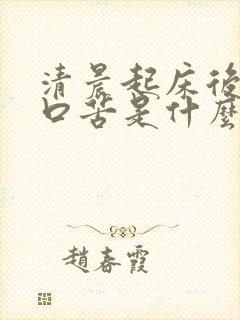 清晨起床後
口苦是什麼
趙春霞